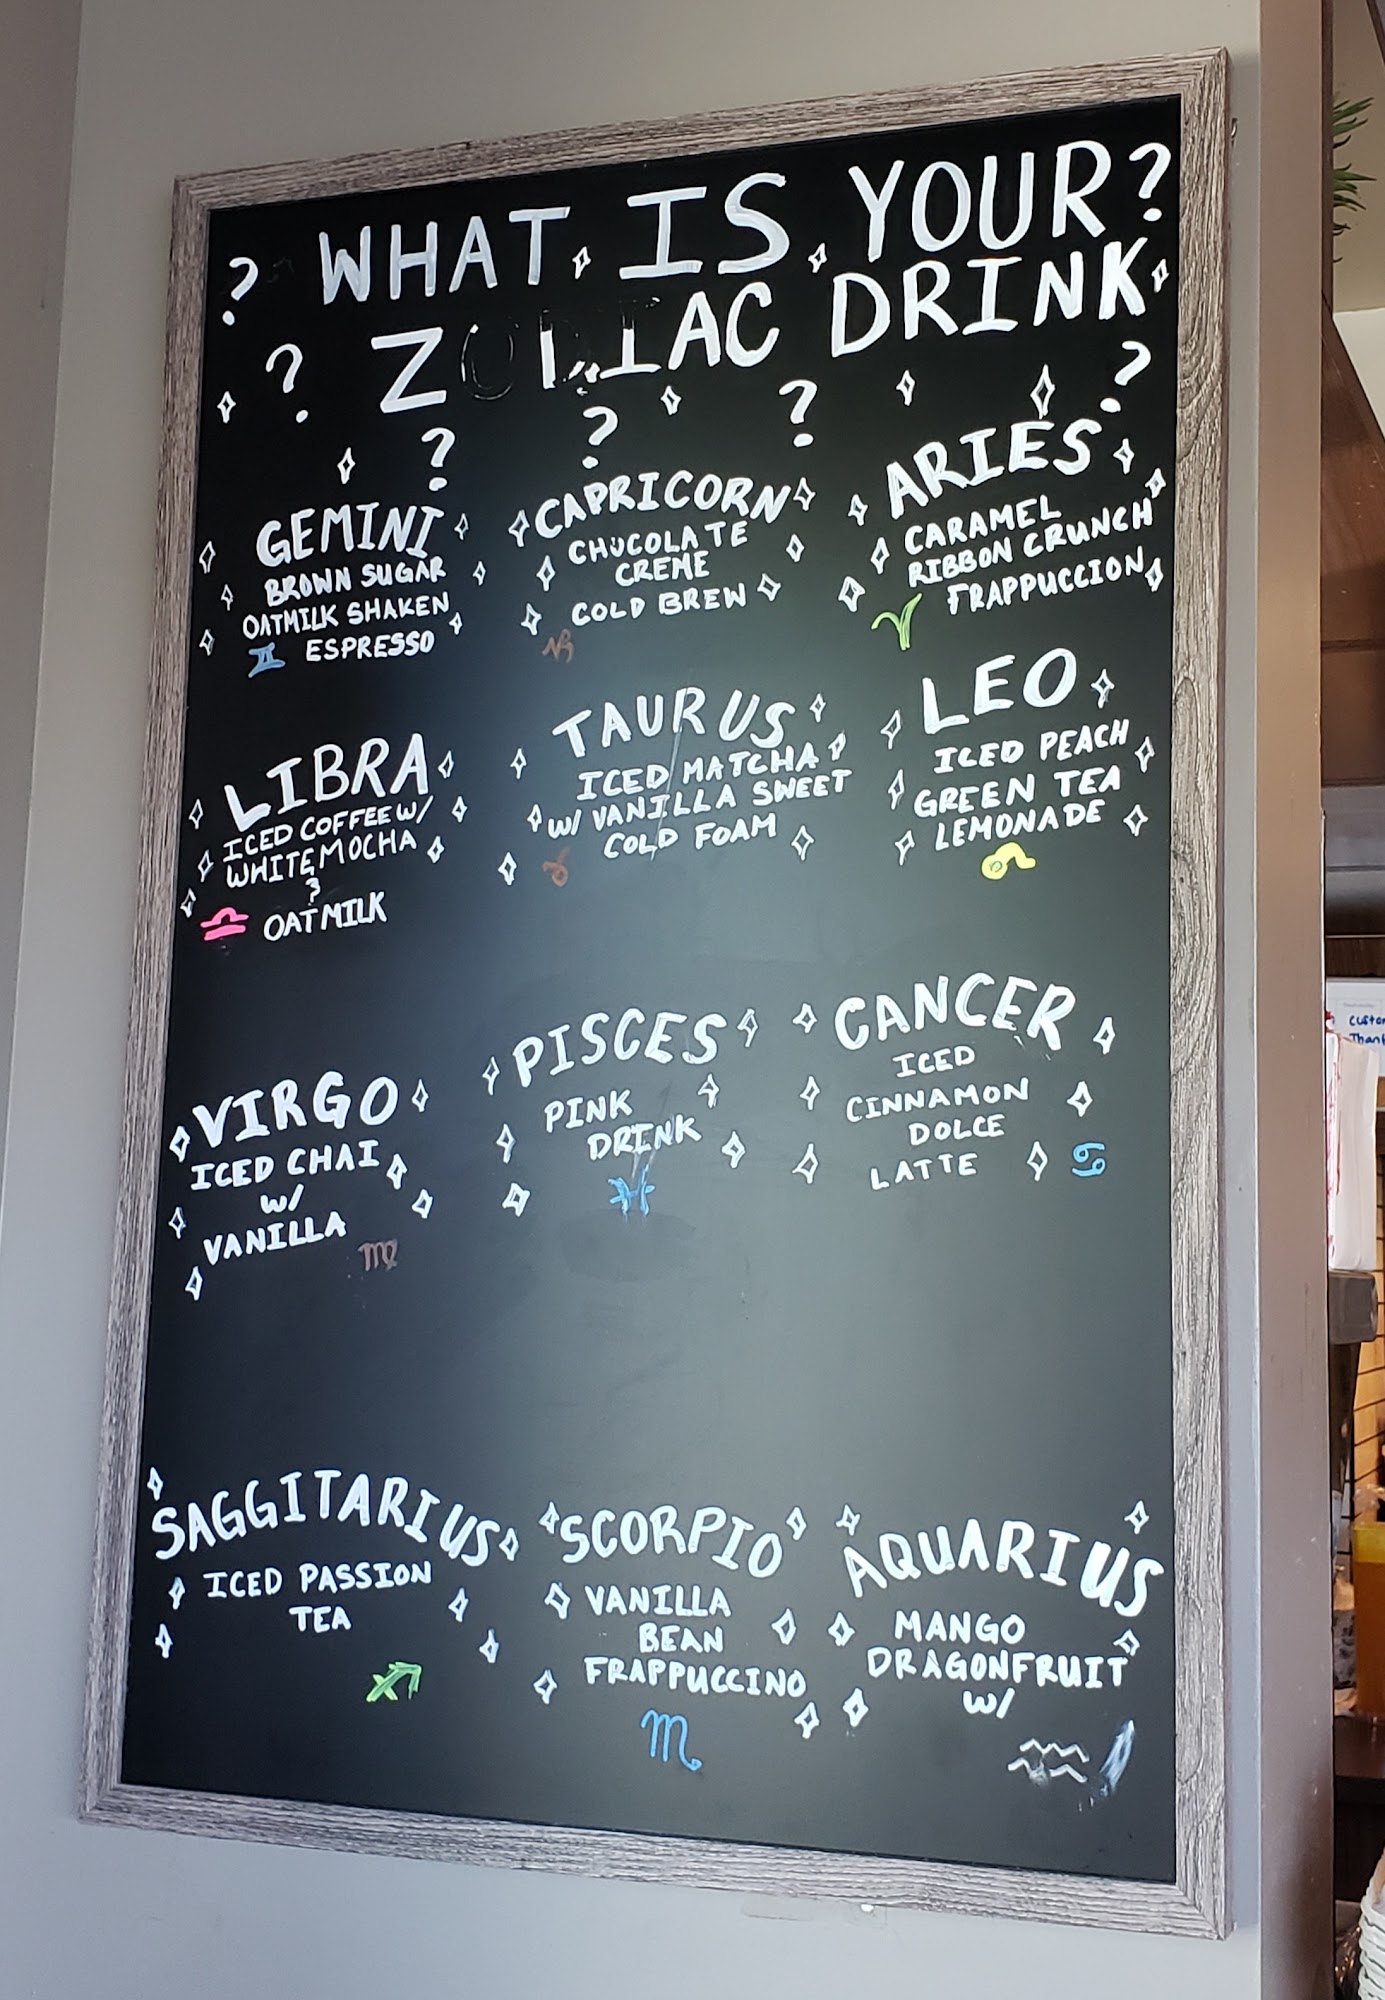 ? WHAT IS YOUR?
? ZODIAC DRINK
? ? ? ?
GEMINI
BROWN SUGAR
OATMILK SHAKEN
ESPRESSO
CAPRICORN
CHOCOLATE
CREME
COLD BREW
ARIES
CARAMEL
RIBBON CRUNCH
FRAPPUCCION
LIBRA
ICED COFFEE W/
WHITE MOCHA
&
OATMILK
TAURUS
ICED MATCHA
W/ VANILLA SWEET
COLD FOAM
LEO
ICED PEACH
GREEN TEA
LEMONADE
VIRGO
ICED CHAI
W/
VANILLA
PISCES
PINK
DRINK
CANCER
ICED
CINNAMON
DOLCE
LATTE
SAGGITARIUS
ICED PASSION
TEA
SCORPIO
VANILLA
BEAN
FRAPPUCCINO
AQUARIUS
MANGO
DRAGONFRUIT
W/